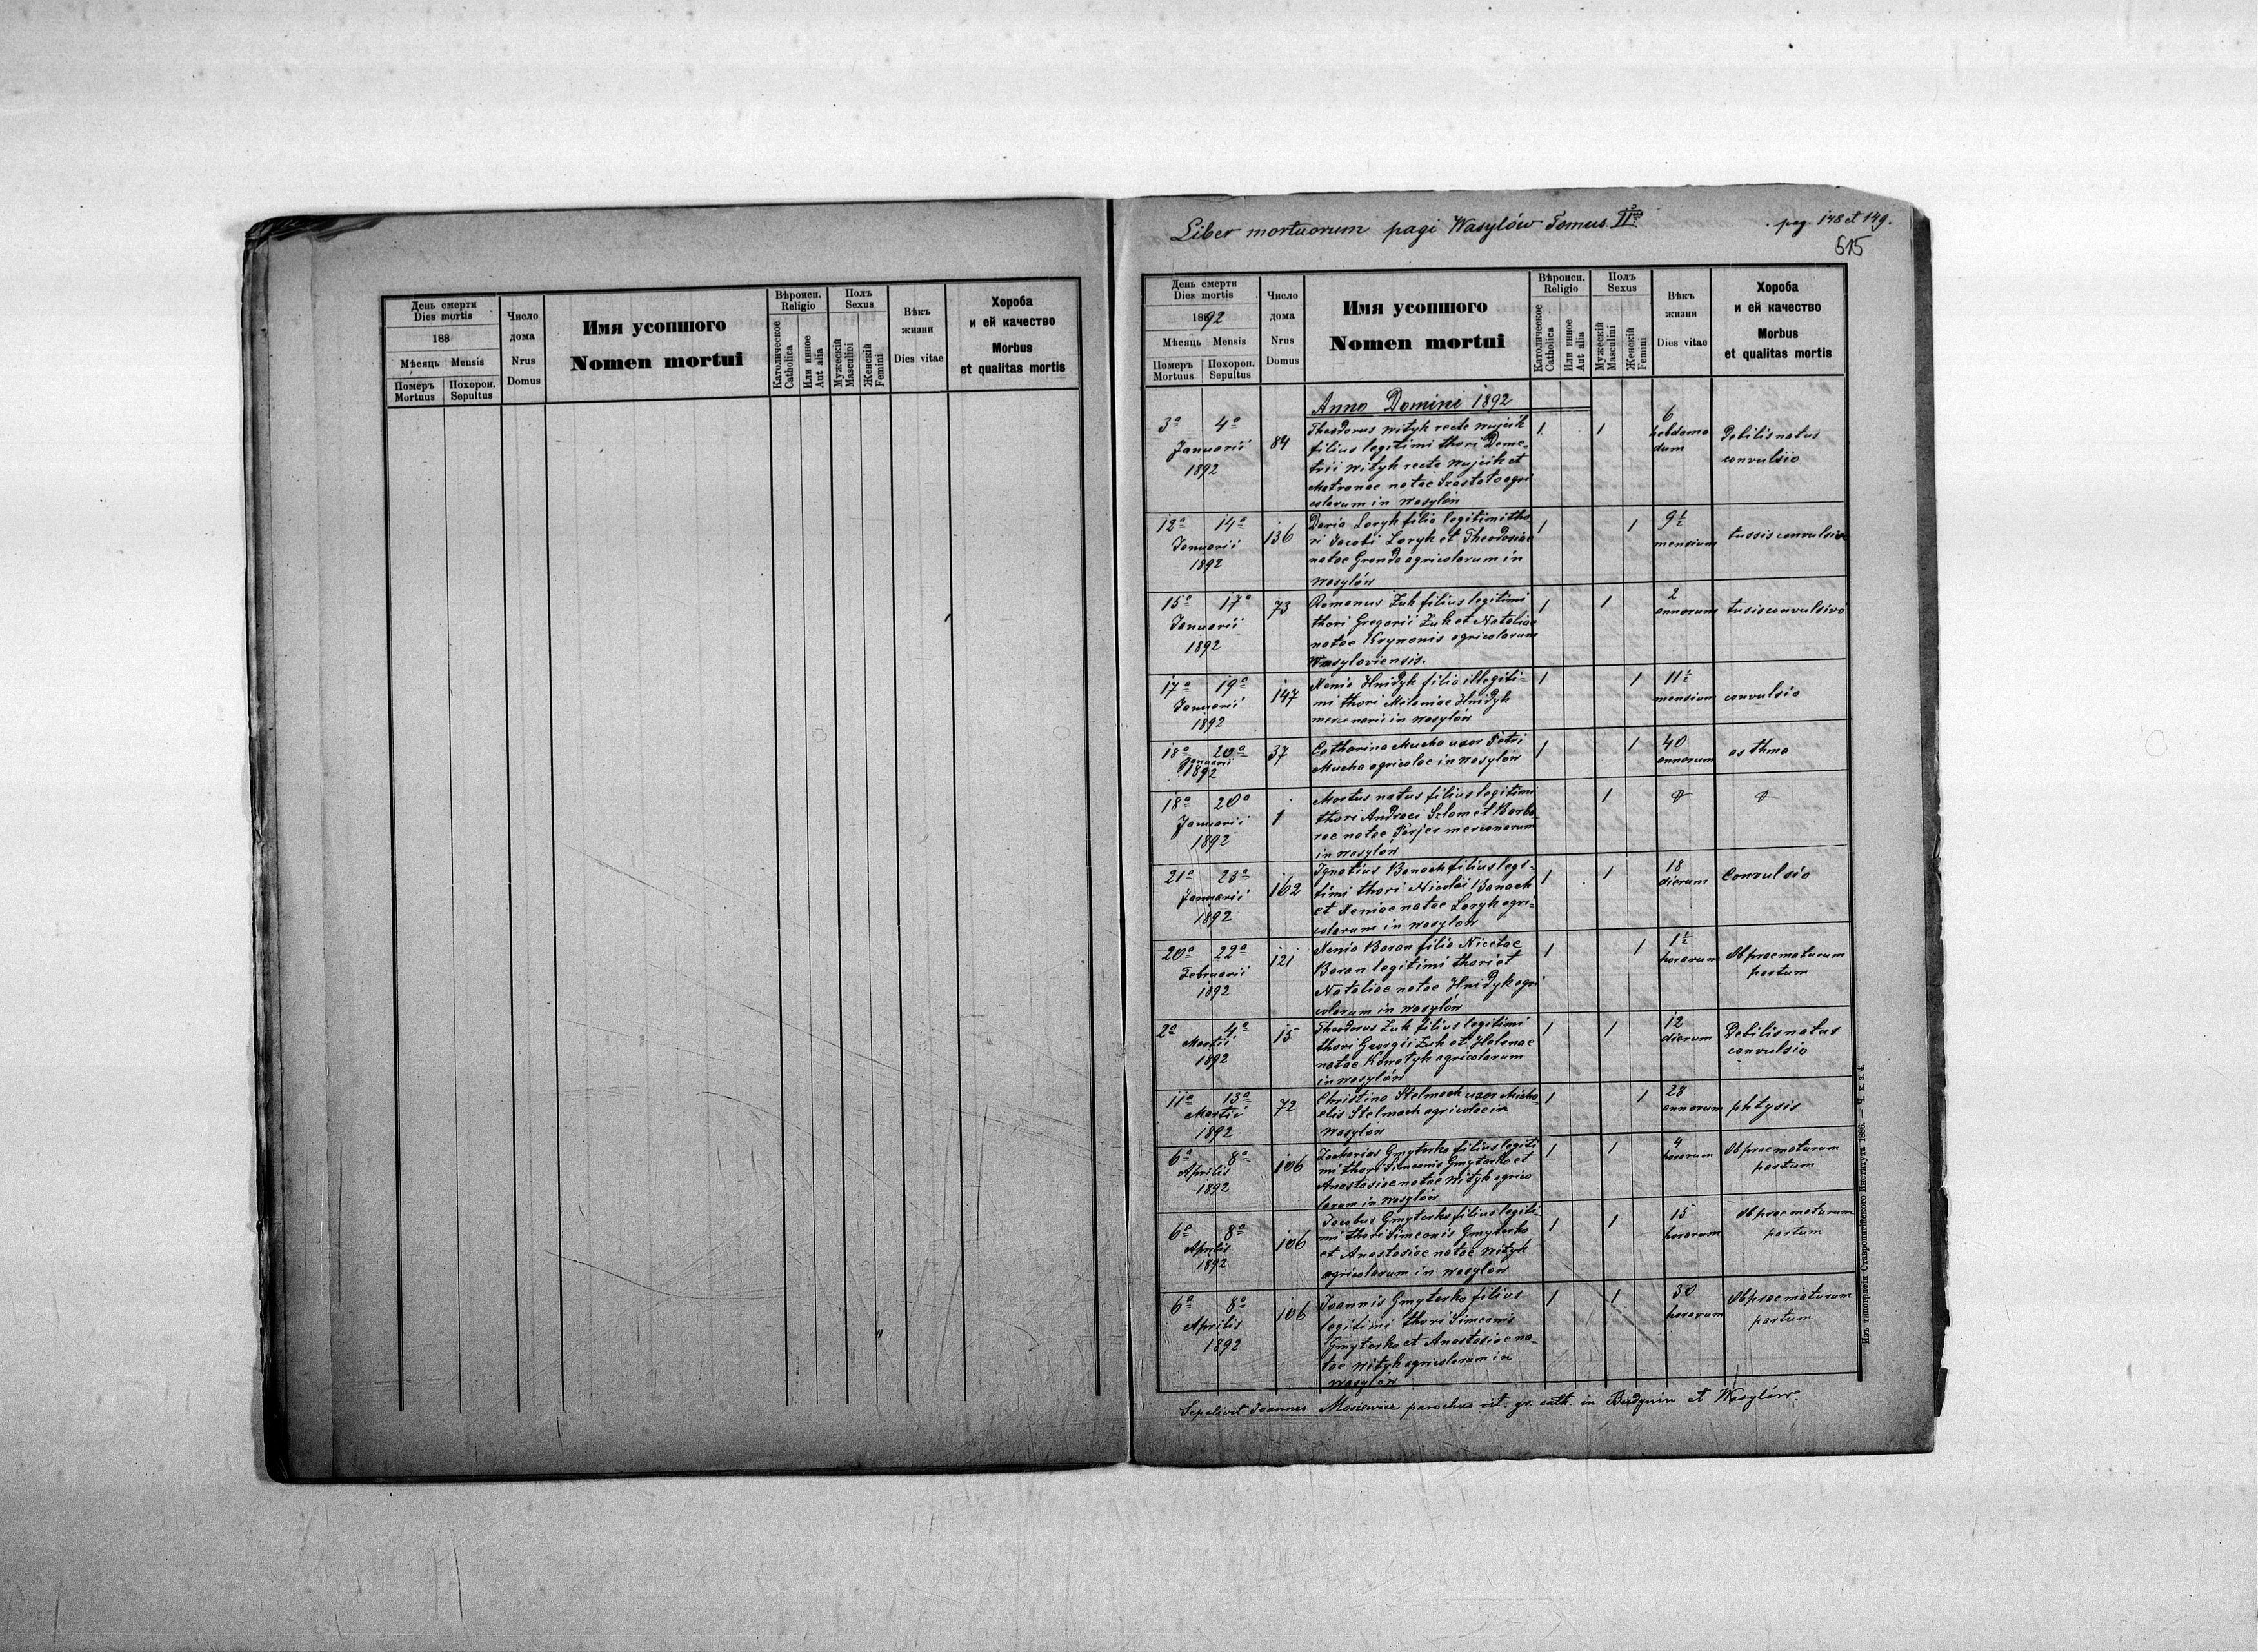 День смерти
Dies mortis
188
Мѣсяць Mensis
Померъ
Mortuus
Похорон.
Sepultus
Число
дома
Nrus
Domus
Имя усопшого
Nomen mortui
Вѣроисп.
Religio
Католическое
Catholica
Или инное
Aut alia
Полъ
Sexus
Мужескій
Masculini
Женскій
Femini
Вѣкъ
жизни
Dies vitae
Хороба
и ей качество
Morbus
et qualitas mortis
Liber mortuorum pagi Wasylów Tomus II
pag 148 et 149.
515
День смерти
Dies mortis
1892
Мѣсяць Mensis
Померъ
Mortuus
Похорон.
Sepultus
Число
дома
Nrus
Domus
Имя усопшого
Nomen mortui
Вѣроисп.
Religio
Католическое
Catholica
Или инное
Aut alia
Полъ
Sexus
Мужескій
Masculini
Женскій
Femini
Вѣкъ
жизни
Dies vitae
Хороба
и ей качество
Morbus
et qualitas mortis
Anno Domini 1892
3a 4a
Januarii
1892
84
Theodorus Wityk recte Wujcik
filius legitimi thori Deme=
trii Wityk recte Wujcik et
Matronae natae agri
colarum in Wasylów
1 1
6
hebdoma
dum
Debilis natus
convulsio
12a 14a
Januarii
1892
136
Daria Loryk filia legitimi tho
ri Jacobi Loryk et Theodosiae
natae Gronda agricolarum in
Wasylów
1 1
9½
mensium
tussis convulsiva
15a 17a
Januarii
1892
73
Romanus Żuk filius legitimi
thori Gregorii Żuk et Nataliae
natae Krywonis agricolarum
Wasyloviensis.
1 1
2
annorum
tusis convulsivo
17a 19a
Januarii
1892
147
Xenia Hnidyk filia illegiti=
mi thori Melaniae Hnidyk
mercenarii in Wasylów
1 1
11½
mensium
convulsio
18a 20a
Januarii
1892
37
Catharina Mucha uxor Petri
Mucha agricolae in Wasylów
1 1
40
annorum
asthma
18a 20a
Januarii
1892
1
Mortus natus filius legitimi
thori Andreei Szlom et Barba
rae natae Parjes mercenarum
in Wasylów
1
21a 23a
Januarii
1892
162
Ignatius Banach filius legi=
timi thori Nicolai Banach
et Xeniae natae Loryk agri=
colarum in Wasylow
1 1
18
dierum
Convulsio
20a 22a
Februarii
1892
121
Xenia Baran filia Nicetae
Baran legitimi thori et
Nataliae natae Hnidyk agri
colarum in Wasylów
1 1
1½
horarum
Ob praematurum
partum
2a 4a
Martii
1892
15
Theodorus Żuk filius legitimi
thori Georgii Żuk et Helenae
natae Konotyk agricolarum
in Wasylów
1 1
12
dierum
Debilis natus
convulsio
11a 13a
Martii
1892
72
Christina Stelmach uxor Micha=
elis Stelmach agricolae in
Wasylów
1 1
28
annorum
phtysis
6a 8a
Aprilis
1892
106
Zacharias Gmyterko filius legiti
mi thori Simeonis Gmyterko et
Anastasiae natae Wityk agrico
larum in Wasylów
1 1
4
horarum
Ob praematurum
partum
6a 8a
Aprilis
1892
106
Jacobus Gmyterko filius legiti
mi thori Simeonis Gmyterko
et Anastasiae natae Wityk
agricolarum in Wasylów
1 1
15
horarum
Ob praematurum
partum
6a 8a
Aprilis
1892
106
Joannis Gmyterko filius
legitimi thori Simeonis
Gmyterko et Anastasiae na=
tae Wityk agricolarum in
Wasylów
1 1
30
horarum
Ob praematurum
partum
Sepelivit Joannes Mosiewicz parochus rit. gr. cath. in Budynin et Wasylów.
Изъ типографіи Ставропигійского Института 1886. — Ч. к. з. 4.